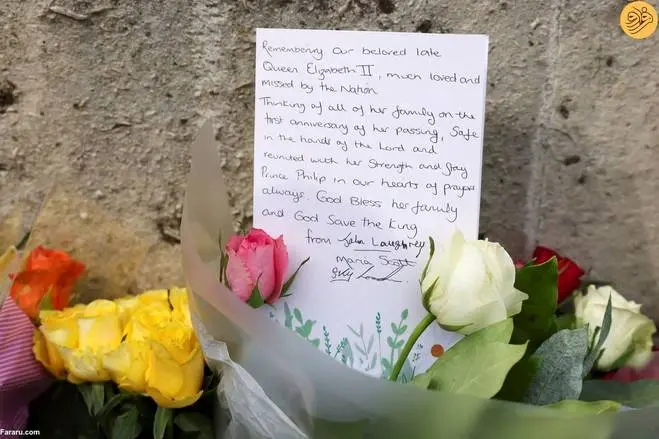 Remembering our beloved late
Queen Elizabeth II, much loved and
missed by the Nation
Thinking of all of her family on the
first anniversary of her passing, Safe
in the hands of the Lord and
reunited with her Strength and Stay
Prince Philip in our hearts of prayers
always. God Bless her family
and God Save the King
from John Loughrey
Maria Scott
فرارو
Fararu.com